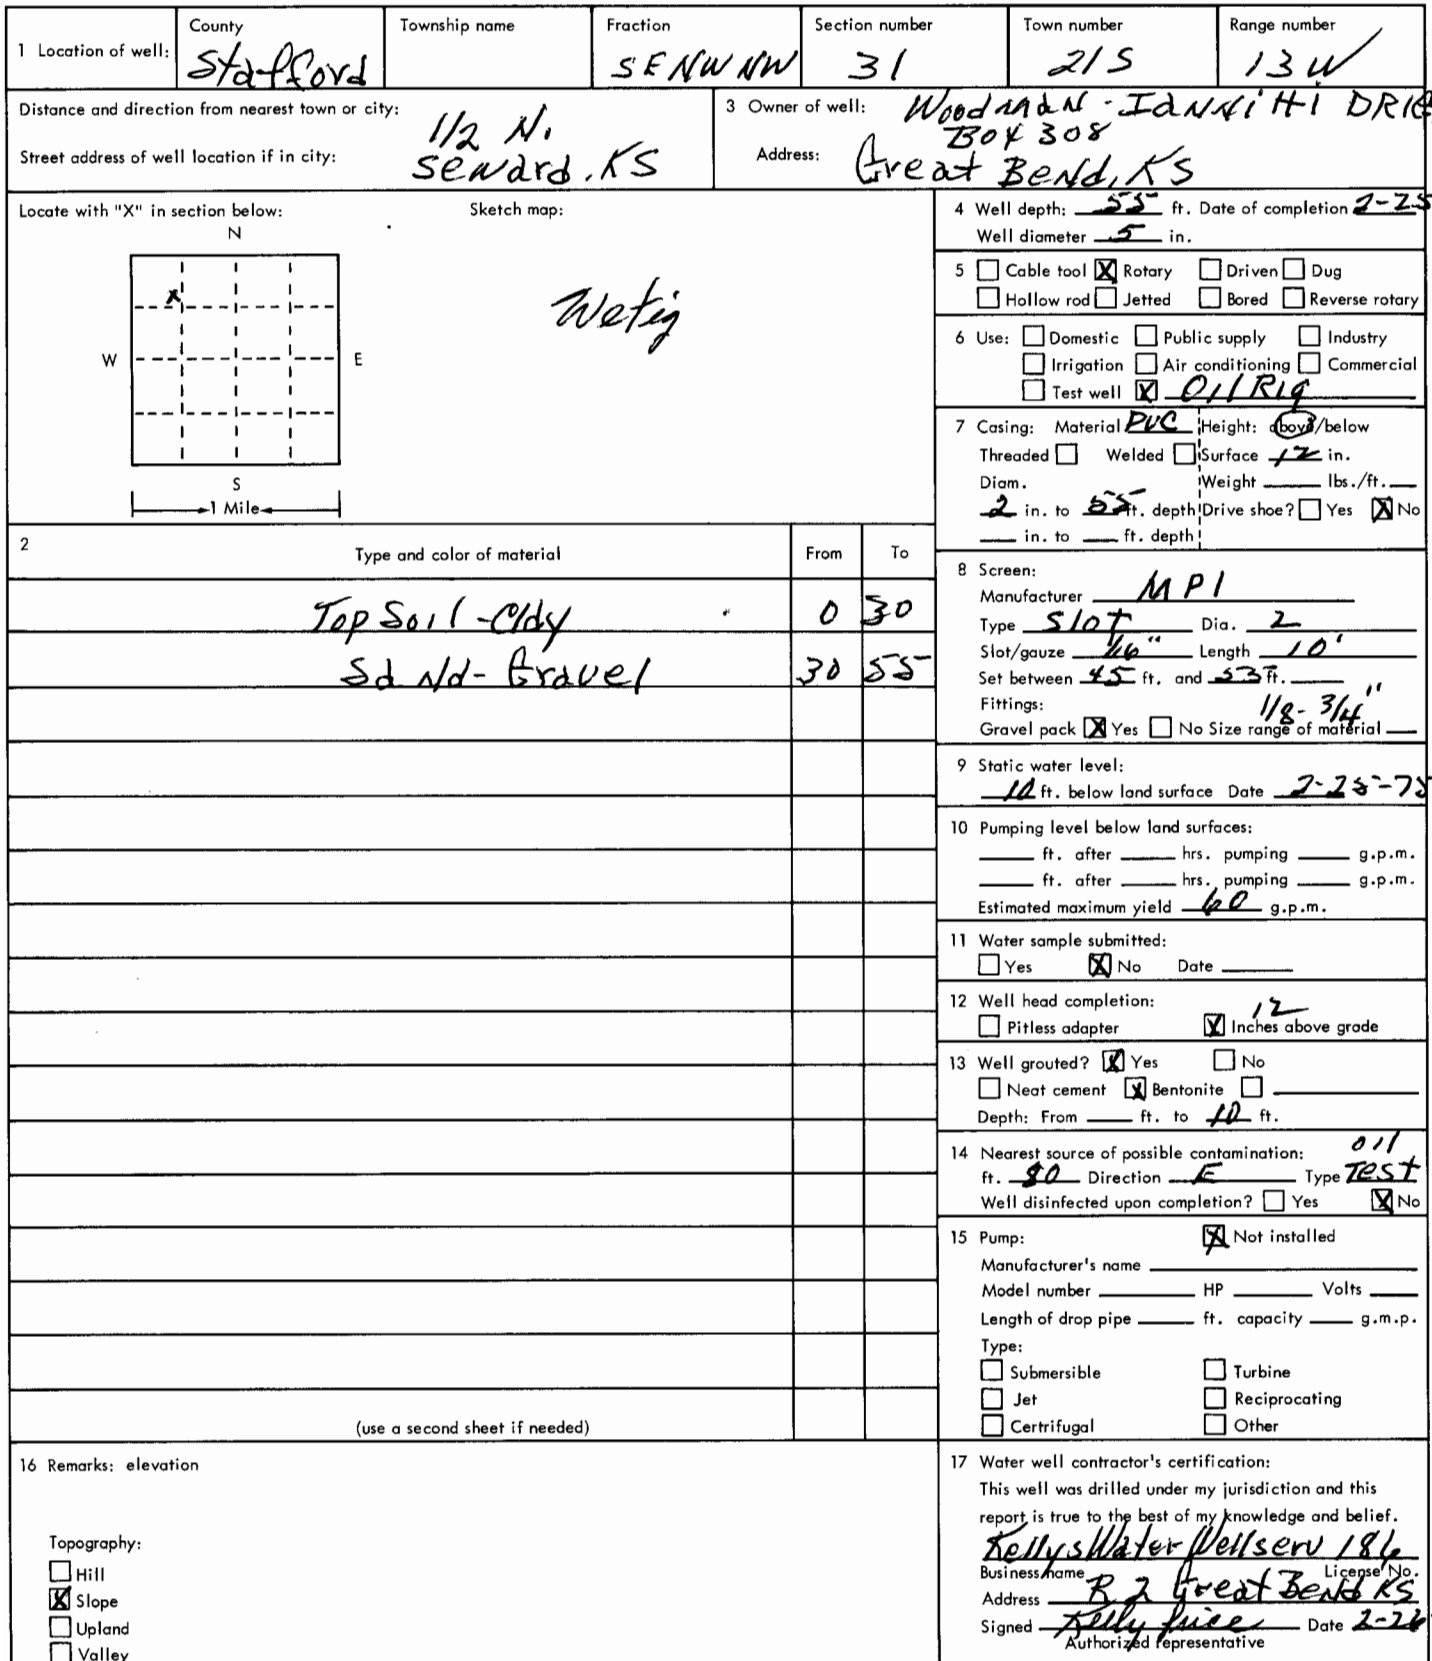 1 Location of well: County Township name Fraction Section number Town number Range number
Stafford SENWNW 31 21S 13W
Distance and direction from nearest town or city: 1/2 N.
Street address of well location if in city: Seward, KS
3 Owner of well: Woodman - Iannitti
Box 308
Address: Great Bend, KS
Locate with "X" in section below: Sketch map:
N
X
W E
S
1 Mile
4 Well depth: 55 ft. Date of completion 2-25
Well diameter 5 in.
5 Cable tool X Rotary Driven Dug
Hollow rod Jetted Bored Reverse rotary
6 Use: Domestic Public supply Industry
Irrigation Air conditioning Commercial
Test well X Oil Rig
7 Casing: Material PVC Height: above/below
Threaded Welded Surface 12 in.
Diam. Weight lbs./ft.
2 in. to 55 ft. depth Drive shoe? Yes X No
in. to ft. depth
2 Type and color of material From To
Top Soil - Clay 0 30
Sand - Gravel 30 55
(use a second sheet if needed)
8 Screen:
Manufacturer MPI
Type Slot Dia. 2
Slot/gauze 1/16" Length 10'
Set between 45 ft. and ft.
Fittings: 1/8 - 3/4"
Gravel pack X Yes No Size range of material
9 Static water level:
10 ft. below land surface Date 2-25-75
10 Pumping level below land surfaces:
ft. after hrs. pumping g.p.m.
ft. after hrs. pumping g.p.m.
Estimated maximum yield 60 g.p.m.
11 Water sample submitted:
Yes X No Date
12 Well head completion: 12
Pitless adapter X Inches above grade
13 Well grouted? X Yes No
Neat cement X Bentonite
Depth: From ft. to 10 ft.
14 Nearest source of possible contamination: oil
ft. 80 Direction E Type Test
Well disinfected upon completion? Yes X No
15 Pump: X Not installed
Manufacturer's name
Model number HP Volts
Length of drop pipe ft. capacity g.m.p.
Type:
Submersible Turbine
Jet Reciprocating
Certrifugal Other
16 Remarks: elevation
Topography:
Hill
X Slope
Upland
Valley
17 Water well contractor's certification:
This well was drilled under my jurisdiction and this
report is true to the best of my knowledge and belief.
Kellys Water Well serv 186
Business name License No.
Address R 2 Great Bend KS
Signed Kelly Price Date 2-26
Authorized representative